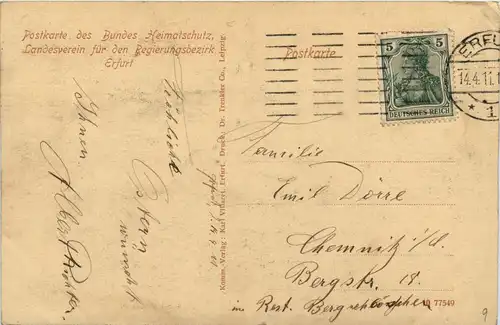 Postkarte des Bundes Heimatschutz,
Landesverein für den Regierungsbezirk
Erfurt
Postkarte
5 5
DEUTSCHES REICH
14.4.11.
* 1
Fröhliche
Ostern
wünscht
Ihnen
Albert
Komm.-Verlag: Karl Villaret, Erfurt. Druck: Dr. Trenkler Co., Leipzig.
Familie
Emil Dörre
Chemnitz i/S.
Bergstr. 18.
im Rest. Bergschlößchen
77549
9